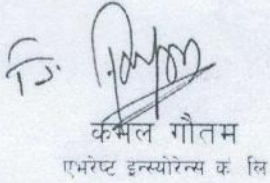 नि.
कमल गौतम
एभरेष्ट इन्स्योरेन्स कं लि